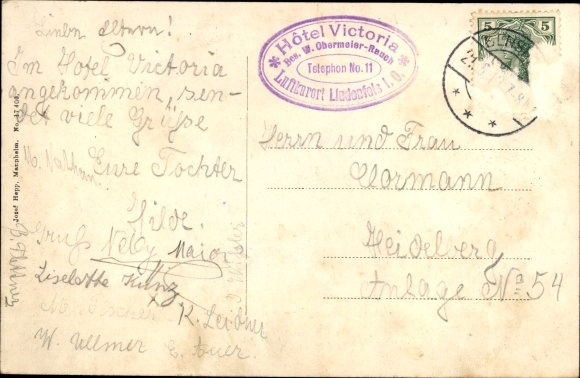 Lieben Eltern!
Im Hotel Victoria
angekommen, sen-
det viele Grüße
Eure Tochter
Hilde.
Gruß Nelly Maior
Liselotte Kunz
K. Leidner
W. Ullmer E. Auer
Josef Happ, Mannheim. No.
Hôtel Victoria
Bes. W. Obermeier-Rauch
Telephon No. 11
Luftkurort Lindenfels i. O.
5 5
Herrn und Frau
Vormann
Heidelberg
Anlage No 54